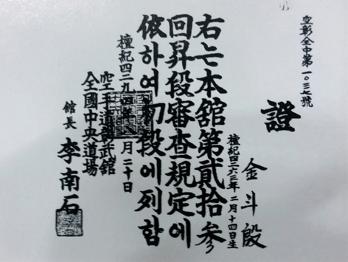 空彰全中第一〇三七號
證
金斗殷
檀紀四二六三年二月十四日生
右는本舘第貳拾參
回昇段審査規定에
依하여初段에列함
檀紀四二九 年 月二十日
空手道 武舘
全國中央道場
舘長 李南石